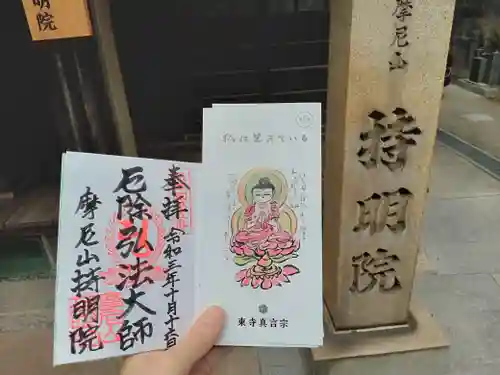 明院
摩尼山
持明院
奉拝
令和三年十月十日
厄除弘法大師
摩尼山持明院
東寺真言宗